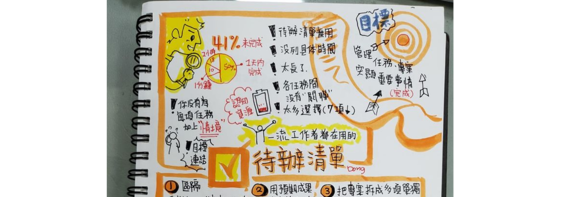 41% 未完成
1小時
50%
1天內
完成
1分鐘
待辦清單無用
沒列具體時間
太長了
各任務間
沒有"關聯"
太多選擇(7項↓)
目標
管理
任務、專案
突顯重要事情
(完成)
你沒有為
這項任務
加上"情境"
目標
連結
一流工作者都在用的
待辦清單
Dong
1 區隔
2 用預期成果
3 把專案拆成多項單獨